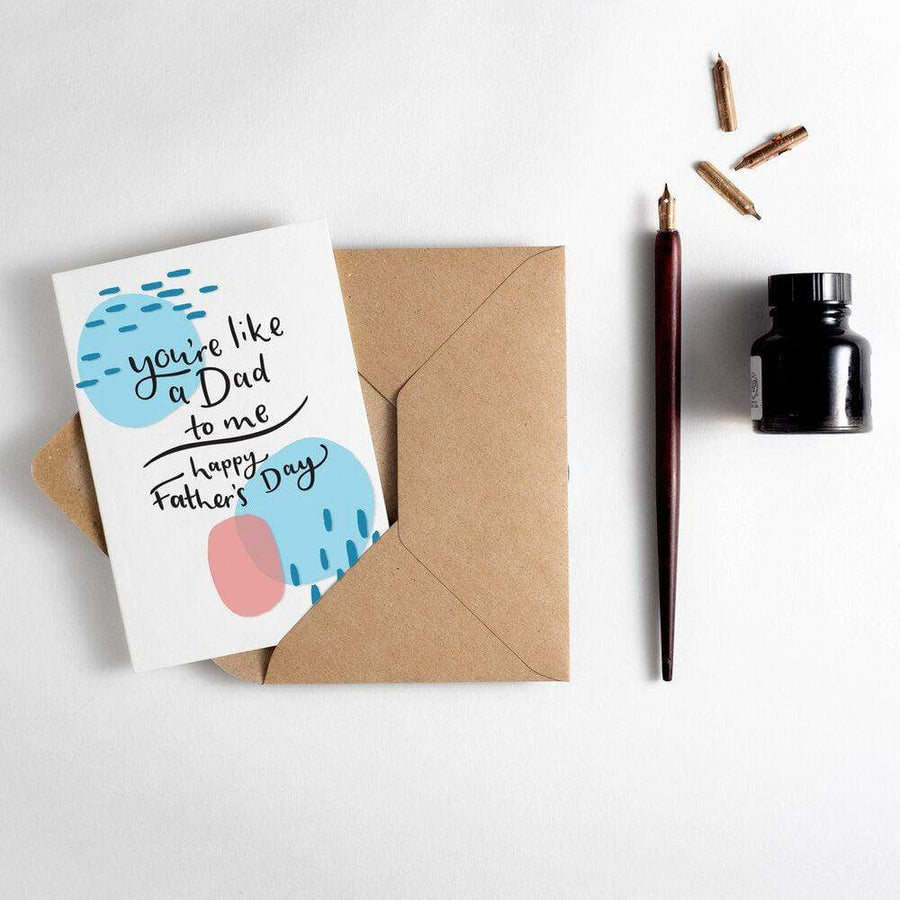 you're like
a Dad
to me
happy
Father's Day